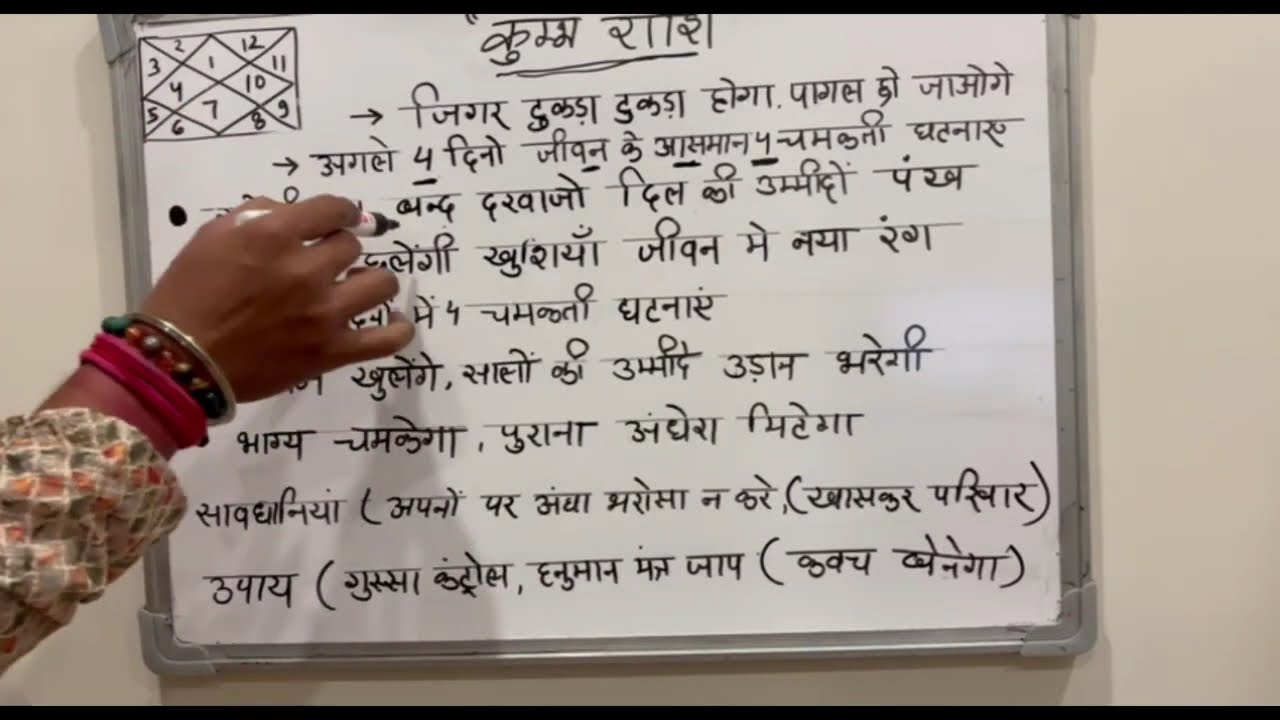 कुम्भ राशि
2 12
3 1 11
4 10
5 7 9
6 8
→ जिगर टुकड़ा टुकड़ा होगा. पागल हो जाओगे
→ अगले 4 दिनो जीवन के आसमान 4 चमकती घटनाएं
बन्द दरवाजो दिल की उम्मीदों पंख
खुशियाँ जीवन मे नया रंग
में 4 चमकती घटनाएं
खुलेंगे, सालों की उम्मीदे उड़ान भरेगी
भाग्य चमकेगा, पुराना अंधेरा मिटेगा
सावधानियां ( अपनों पर अंधा भरोसा न करे, (खासकर परिवार)
उपाय ( गुस्सा कंट्रोल, हनुमान मंत्र जाप ( कवच बनेगा)